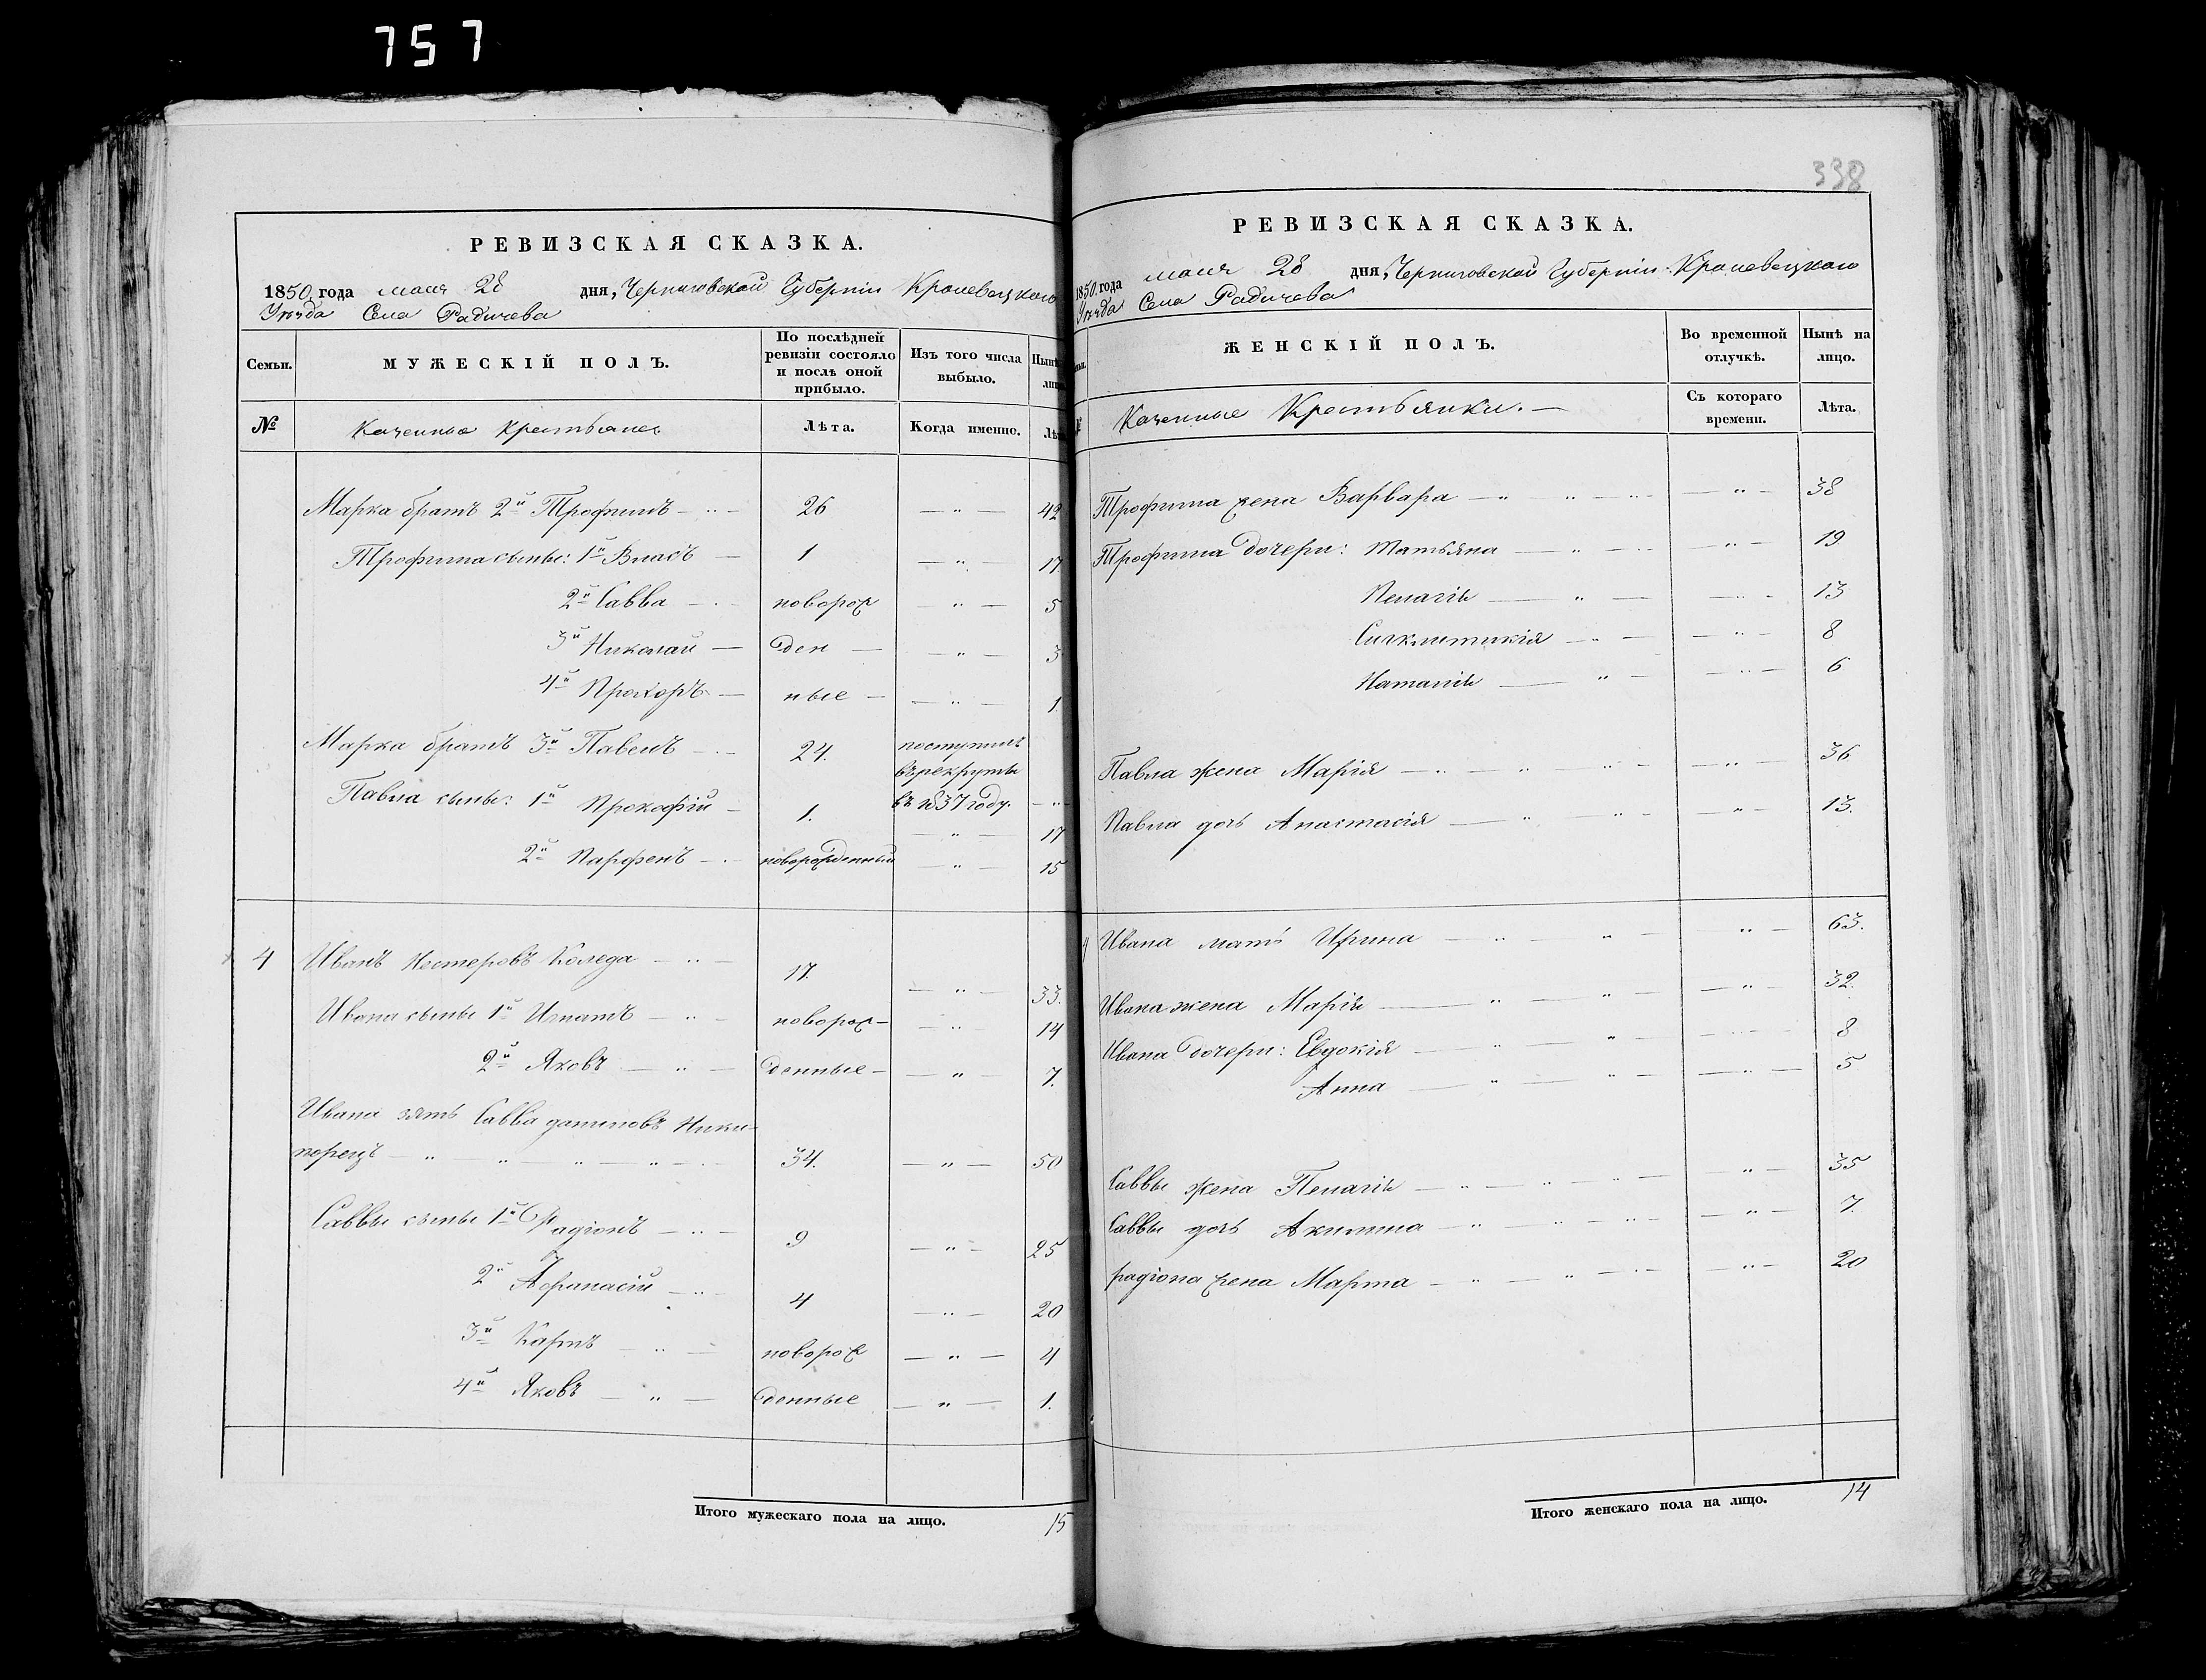 757
РЕВИЗСКАЯ СКАЗКА.
1850 года мая 28 дня, Черниговской Губерніи Кролевецкаго
Уѣзда Села Радичева
Семьи.
МУЖЕСКІЙ ПОЛЪ.
По послѣдней ревизіи состояло и послѣ оной прибыло.
Изъ того числа выбыло.
Нынѣ
лицо
№
Казенные Крестьяне
Лѣта.
Когда именно.
Лѣт
Марка братъ 2й Трофимъ — 26 — 42
Трофима сыны: 1й Власъ — 1 — 17
2й Савва — новорож — 5
3й Николай — ден — 3
4й Прохоръ — ные — 1.
Марка братъ 3й Павелъ — 24. поступилъ
въ рекруты
въ 1837 году.
Павла сыны: 1й Прокофій — 1. — 17
2й Парфенъ — новорожденный — 15
4 Иванъ Нестеровъ Коледа — 17. — 33.
Ивана сыны 1й Игнатъ — новорож- — 14
2й Яковъ — денные — 7.
Ивана зять Савва даниловъ Ники-
порецъ — 34. — 50
Саввы сыны 1й Радіонъ — 9 — 25
2й Афанасій — 4 — 20
3й Карпъ — новорож — 4
4й Яковъ — денные — 1.
Итого мужескаго пола на лицо. 15
338
РЕВИЗСКАЯ СКАЗКА.
1850 года мая 28 дня, Черниговской Губерніи Кролевецкаго
Уѣзда Села Радичева
ЖЕНСКІЙ ПОЛЪ.
Во временной отлучкѣ.
Нынѣ на лицо.
Казенные Крестьянки. —
Съ котораго времени.
Лѣта.
Трофима жена Варвара — 38
Трофима дочери: Татьяна — 19
Пелагія — 13
Сигклитикія — 8
Наталія — 6
Павла жена Марія — 36
Павла дочь Анастасія — 13.
Ивана мать Ирина — 63.
Ивана жена Марія — 32.
Ивана дочери: Евдокія — 8
Анна — 5
Саввы жена Пелагія — 35
Саввы дочь Акилина — 7.
радіона жена Марта — 20
Итого женскаго пола на лицо. 14